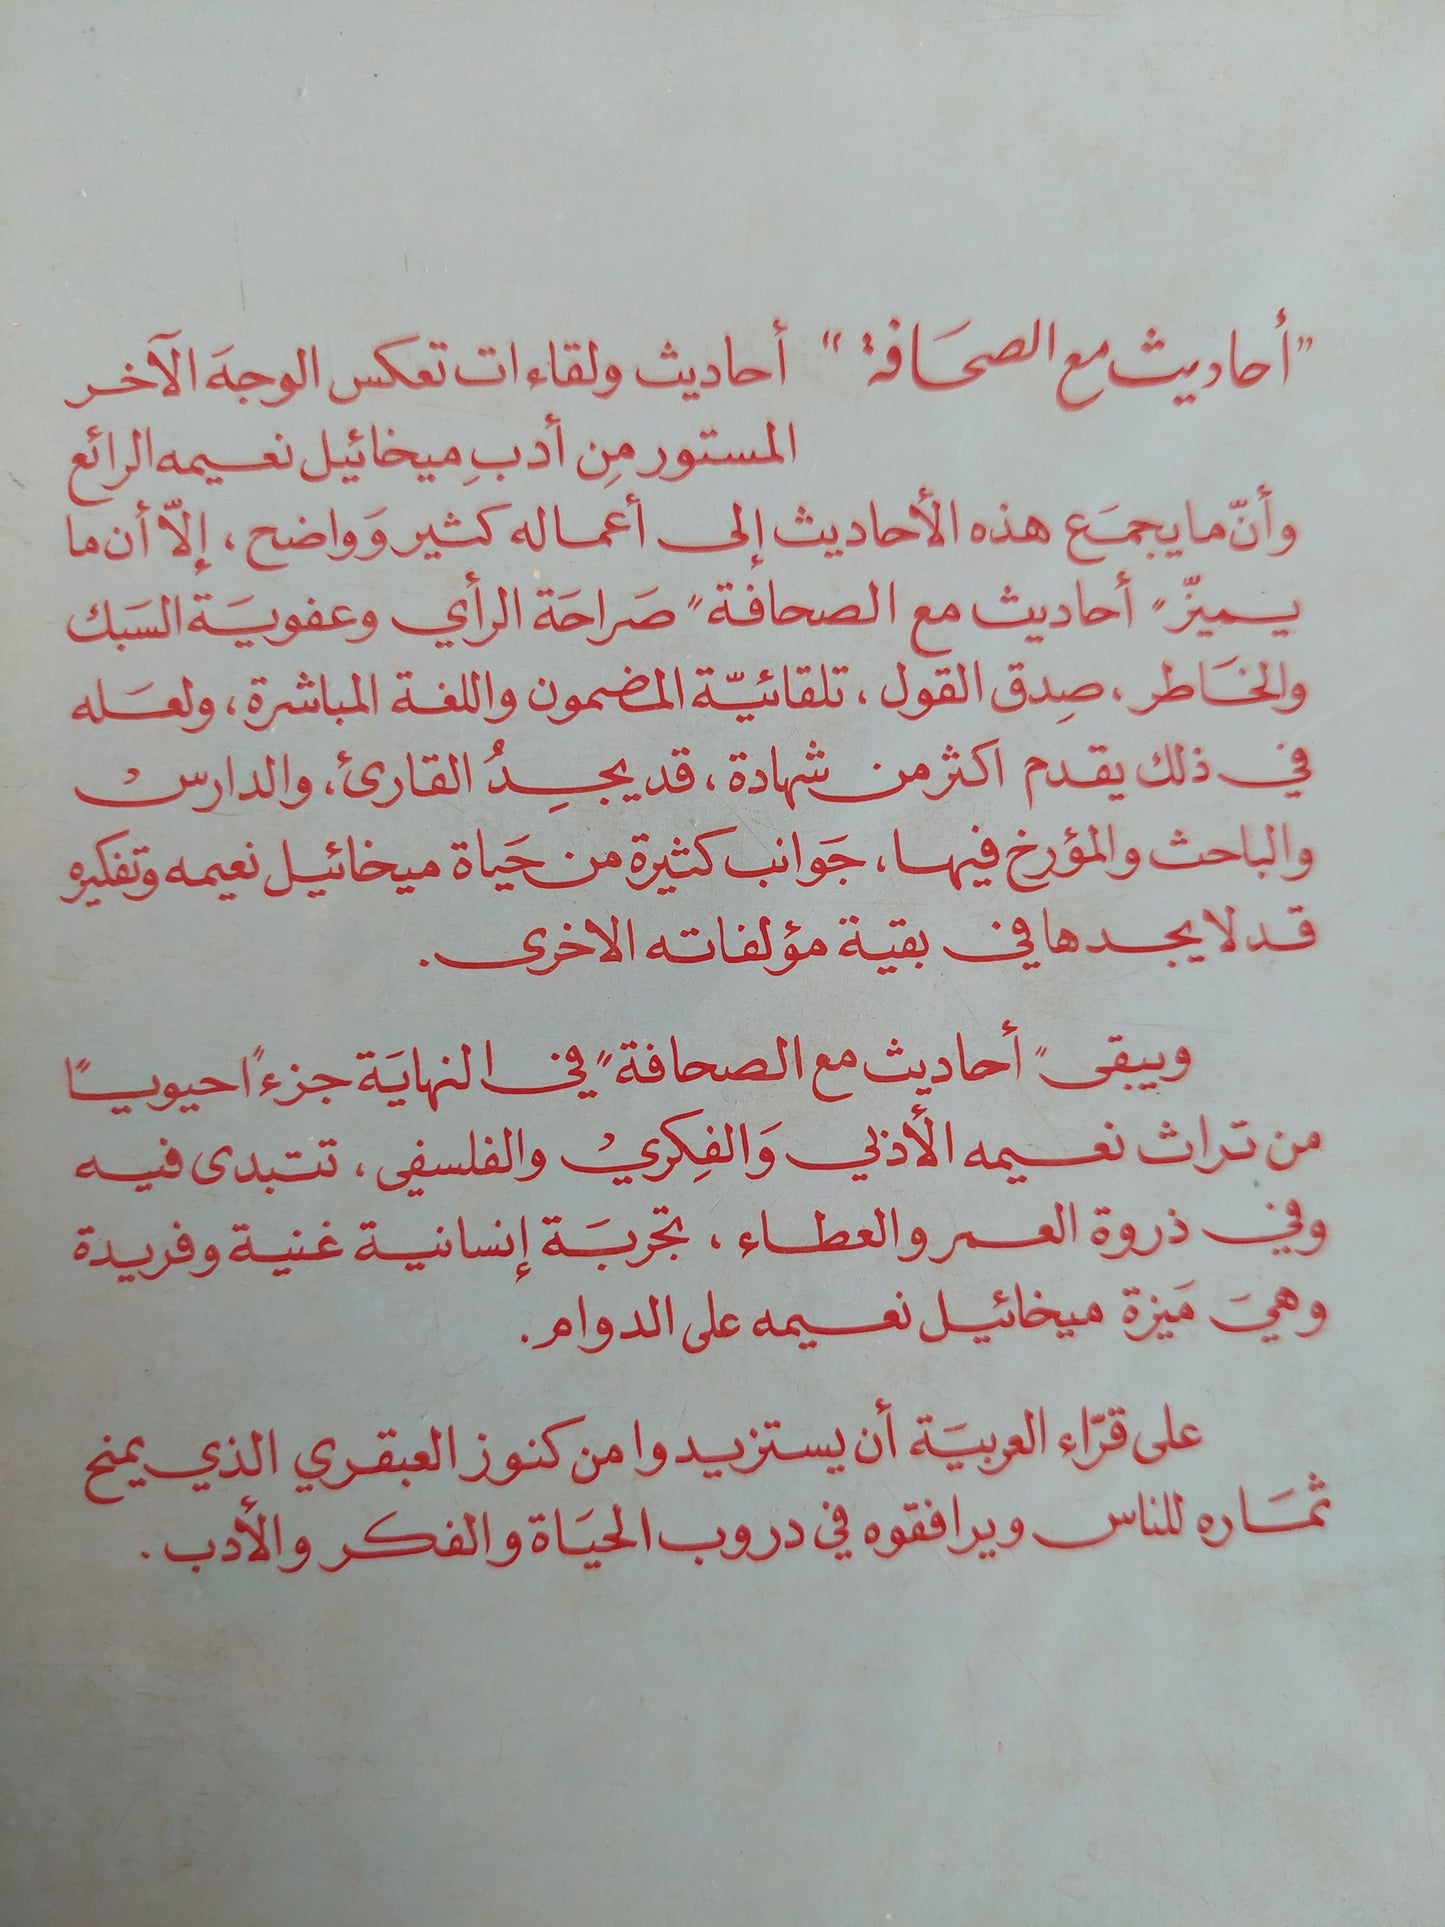 "أحاديث مع الصحَافة" أحاديث ولقاءات تعكس الوجهَ الآخر
المستور مِن أدبِ ميخائيل نعيمه الرائع
وأنّ ما يجمَع هذه الأحاديث إلى أعماله كثير وَواضح، إلاّ أن ما
يميزّ "أحاديث مع الصحافة" صَراحَة الرأي وعفويَة السَبك
والخَاطر، صِدق القول، تلقائيّة المضمون واللغة المباشرة، ولعَله
في ذلك يقدم اكثر من شهادة، قد يجِدُ القارئ، والدارسْ
والباحث والمؤرخ فيها، جَوانب كثيرة من حَياة ميخائيل نعيمه وتفكيره
قد لا يجدها في بقية مؤلفاته الاخرى.
ويبقى "أحاديث مع الصحافة" في النهايَة جزءاً حيويًا
من تراث نعيمه الأدبي وَالفِكريْ والفلسفي، تتبدى فيه
وفي ذروة العمر والعطاء، تجربَة إنسانية غنية وفريدة
وهيَ مَيزة ميخائيل نعيمه على الدوام.
على قرّاء العربيَة أن يستزيدوا من كنوز العبقري الذي يمنح
ثمَاره للناس ويرافقوه في دروب الحيَاة والفكر والأدب.